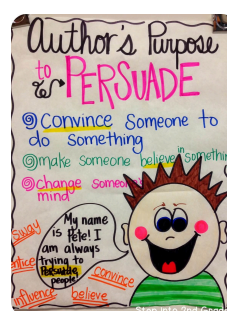 Author's Purpose
to PERSUADE
Convince someone to
do something
make someone believe in something
change someone's
mind
My name
is Pete! I
am always
trying to
Persuade
people!
sway
entice
influence
convince
believe
Step into 2nd Grade